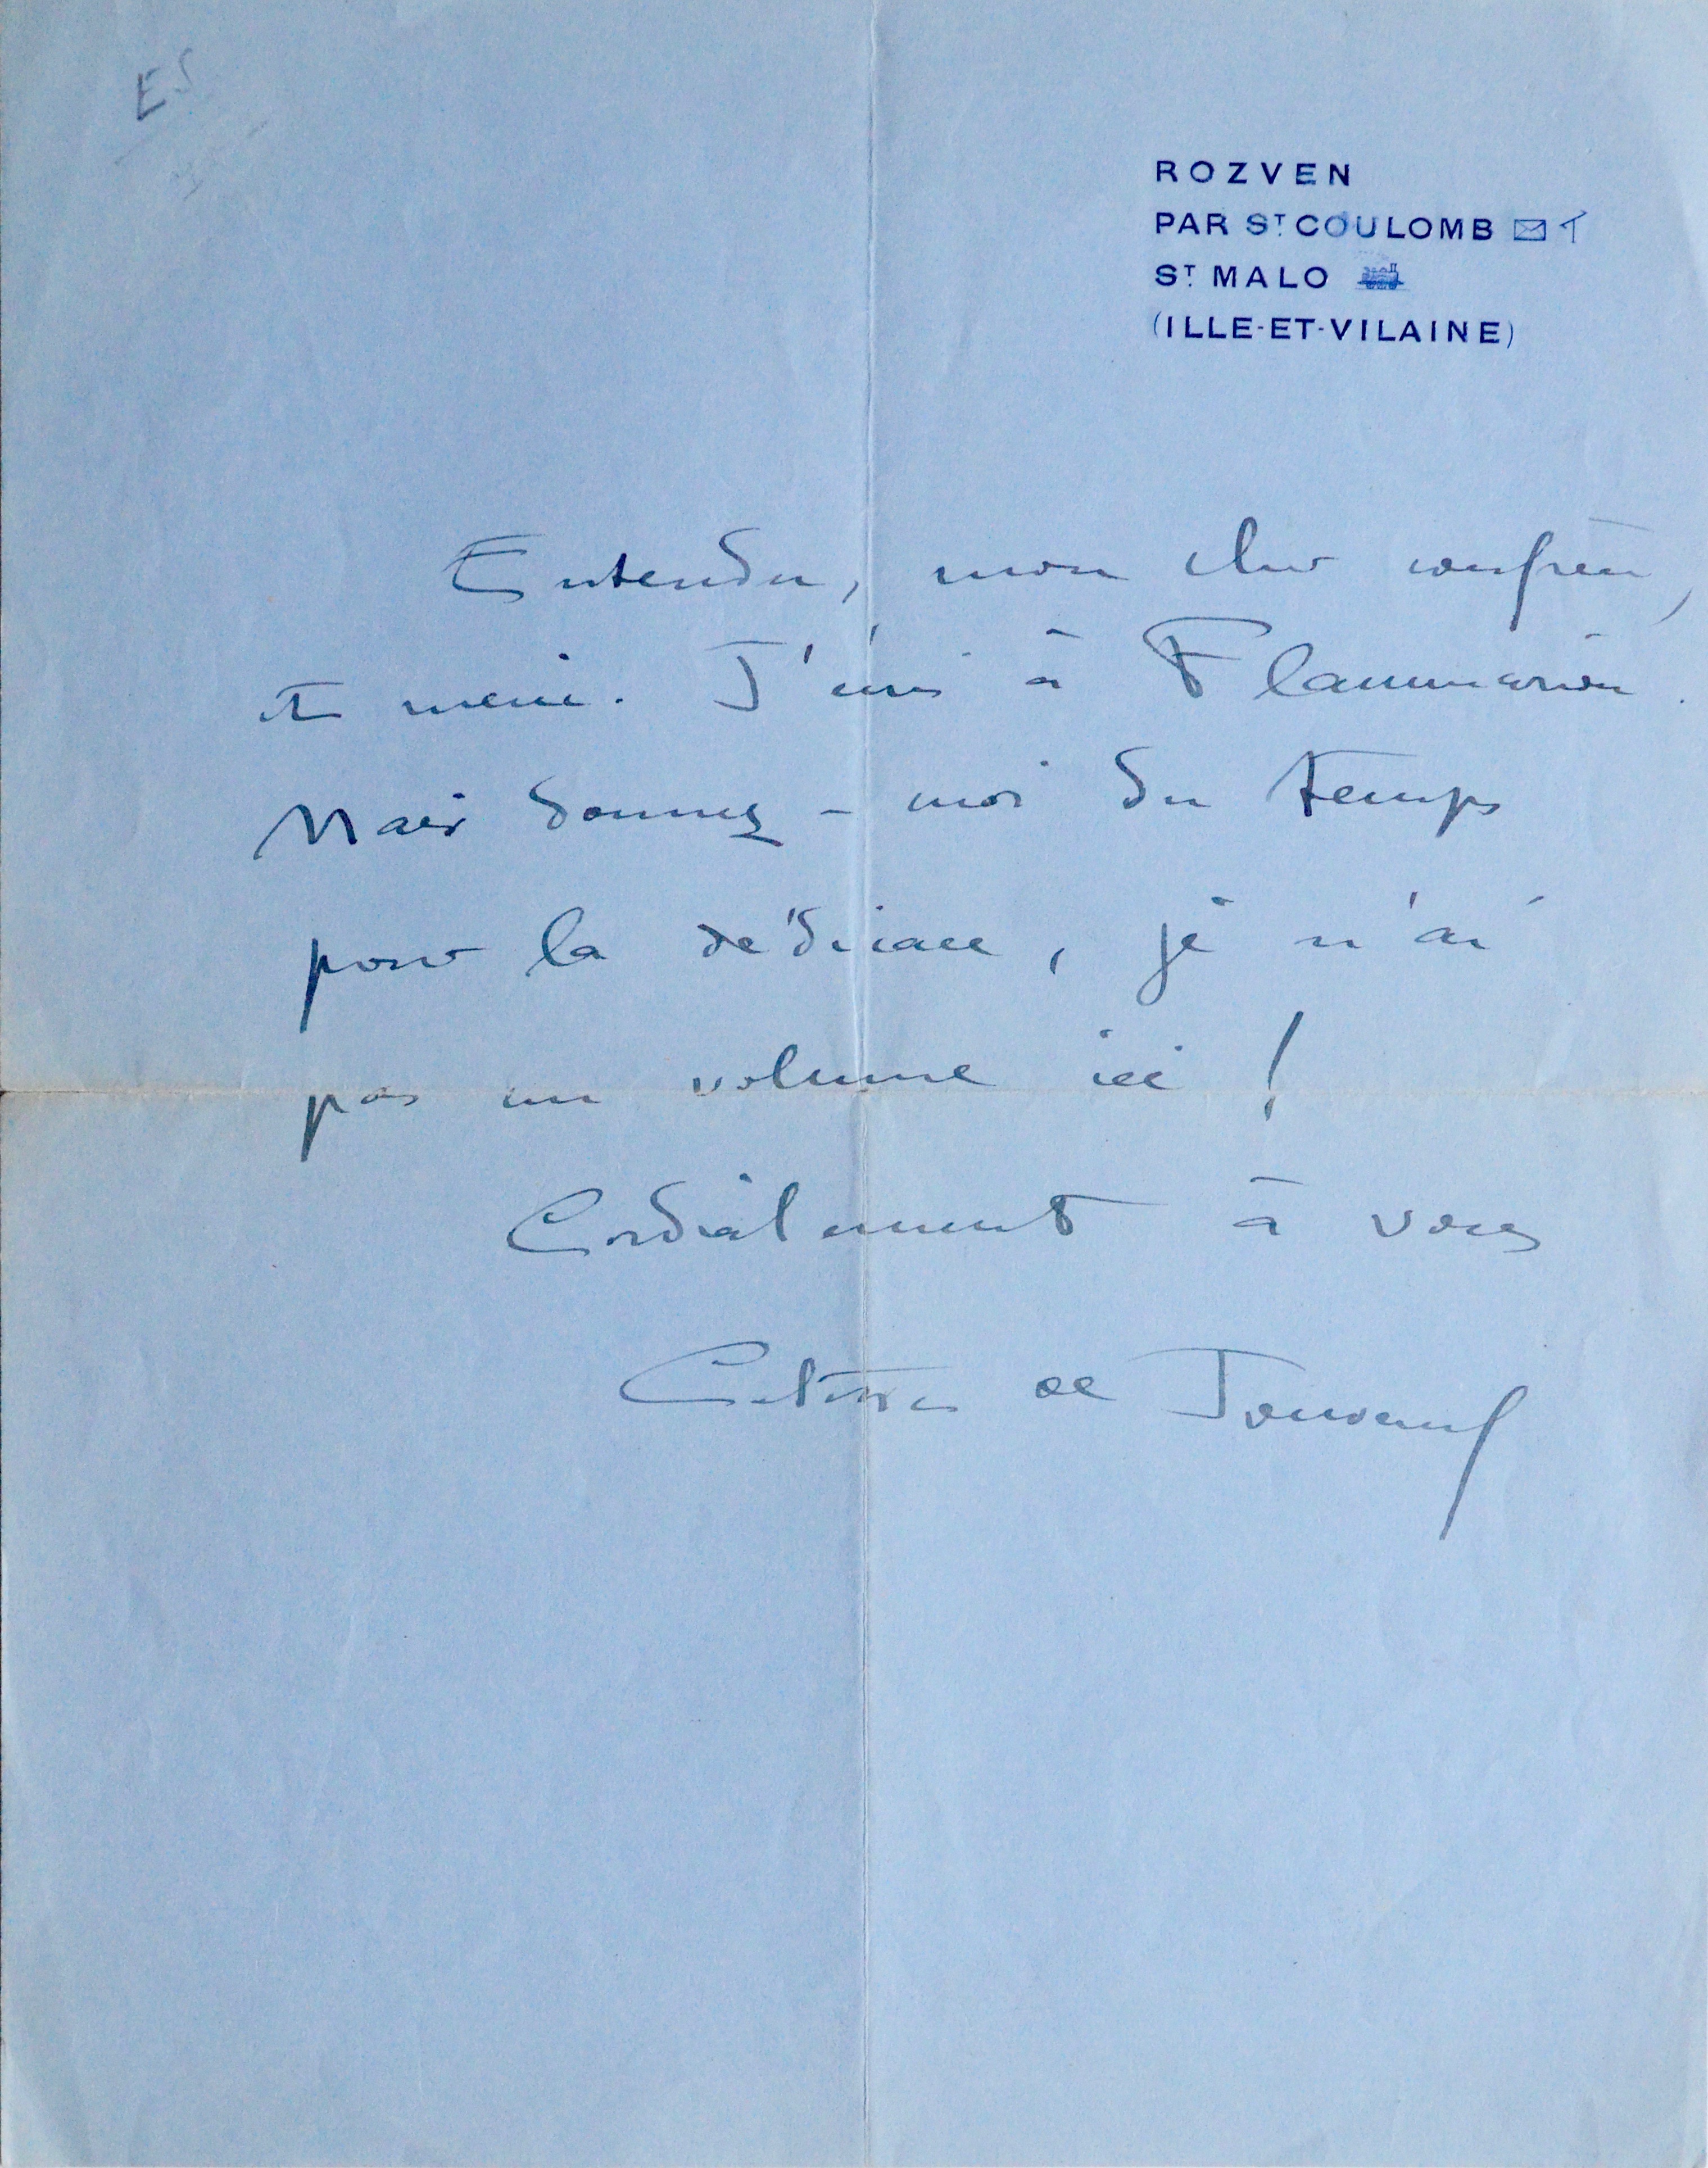 ES
ROZVEN
PAR ST. COULOMB
ST. MALO
(ILLE-ET-VILAINE)
Entendu, mon cher confrère,
et merci. J'écris à Flammarion.
Mais donnez-moi du temps
pour la dédicace, je n'ai
pas un volume ici !
Cordialement à vous
Colette de Jouvenel